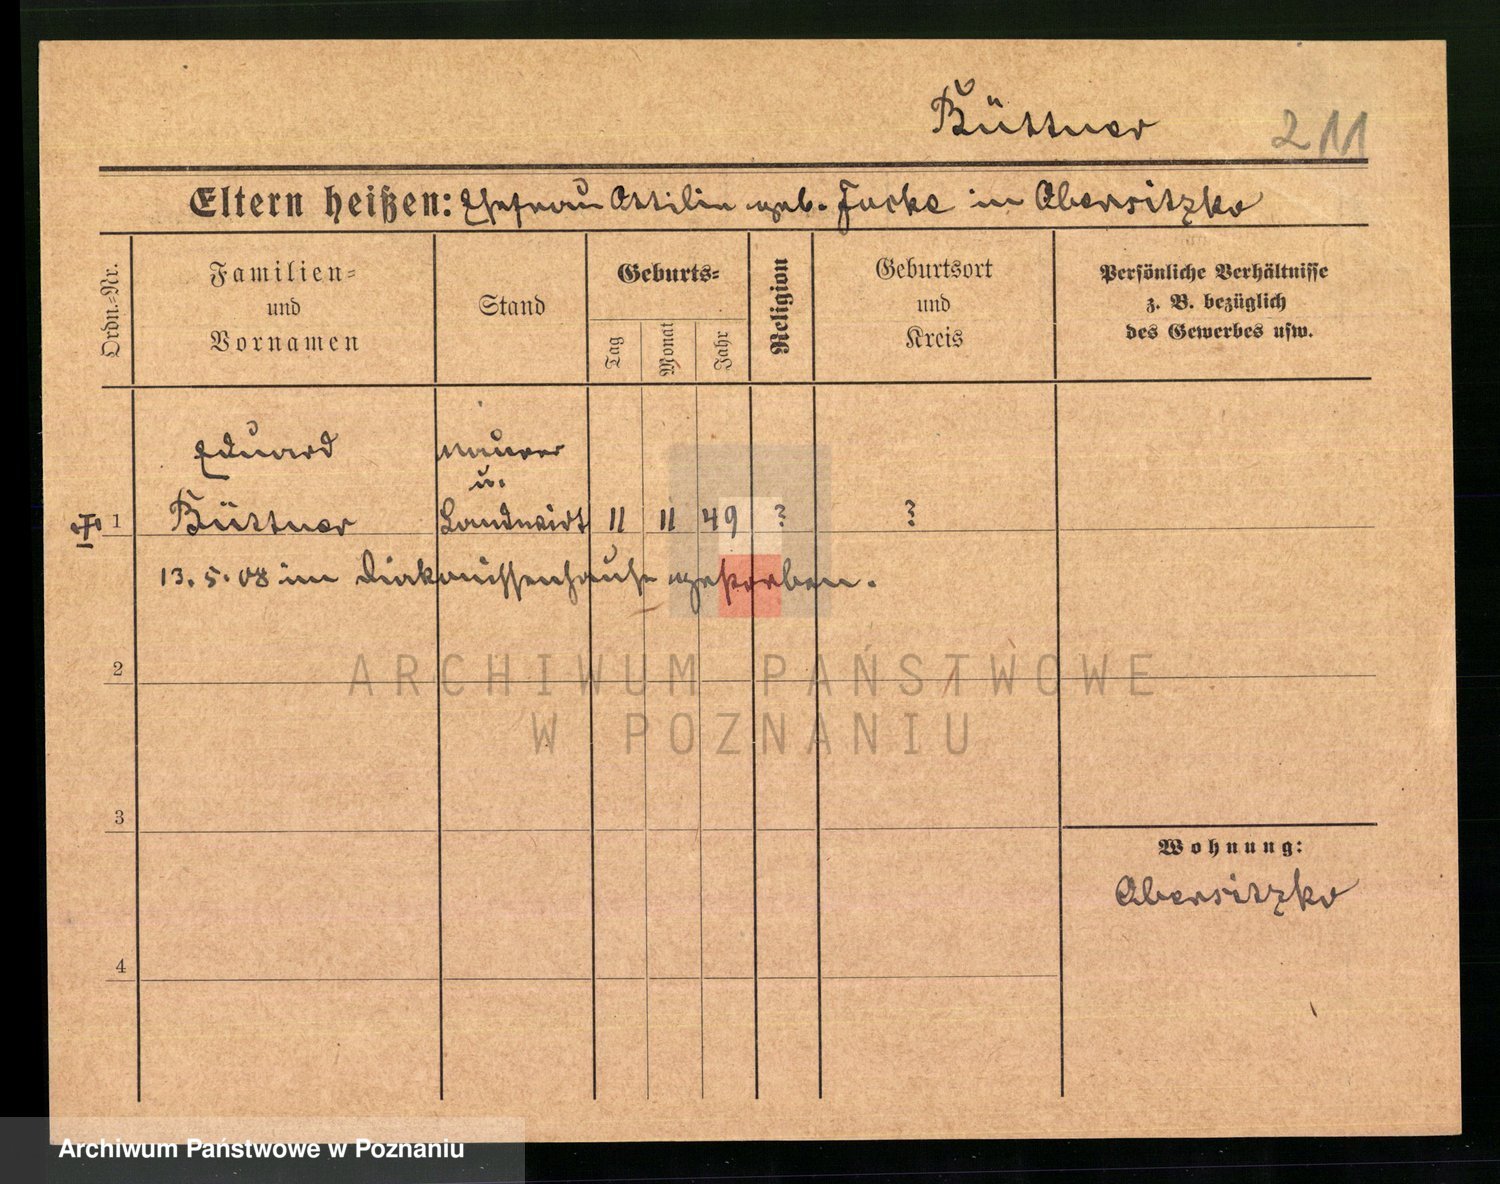 Büttner 211
Eltern heißen: Ehefrau Ottilie geb. Jacke in Obersitzko
Ordn.=Nr.
Familien=
und
Vornamen
Stand
Geburts=
Tag
Monat
Jahr
Religion
Geburtsort
und
Kreis
Persönliche Verhältnisse
z. B. bezüglich
des Gewerbes usw.
Eduard Maurer
u.
1 Büttner Landwirt 11 11 49 ? ?
13. 5. 08 im Diakonissenhause gestorben.
2
ARCHIWUM PAŃSTWOWE
W POZNANIU
3
Wohnung:
Obersitzko
4
Archiwum Państwowe w Poznaniu